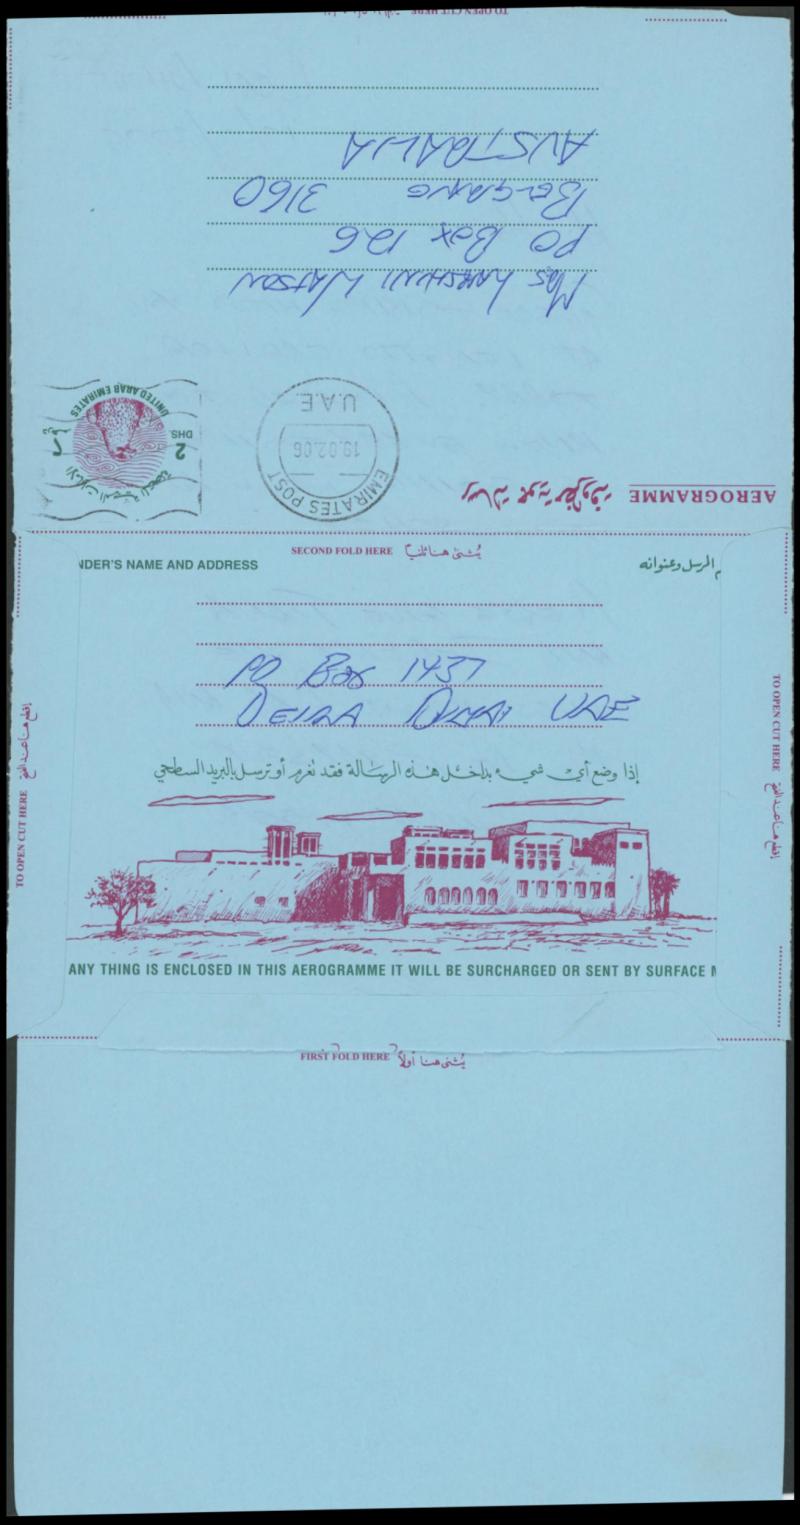 TO OPEN CUT HERE
AEROGRAMME رسالة جوية مظروفة
UNITED ARAB EMIRATES
2 DHS. ٢
الإمارات العربية المتحدة
EMIRATES POST
19.02.06
U.A.E.
PO Box 126
BELGRAVE 3160
AUSTRALIA
SECOND FOLD HERE يُثنى هنا ثانياً
NDER'S NAME AND ADDRESS
المرسل وعنوانه
PO Box 1437
DEIRA DUBAI UAE
إذا وضع أي شيء بداخل هذه الرسالة فقد تغرم أو ترسل بالبريد السطحي
ANY THING IS ENCLOSED IN THIS AEROGRAMME IT WILL BE SURCHARGED OR SENT BY SURFACE M
TO OPEN CUT HERE إقطع هنا عند الفتح
TO OPEN CUT HERE إقطع هنا عند الفتح
FIRST FOLD HERE يُثنى هنا أولاً